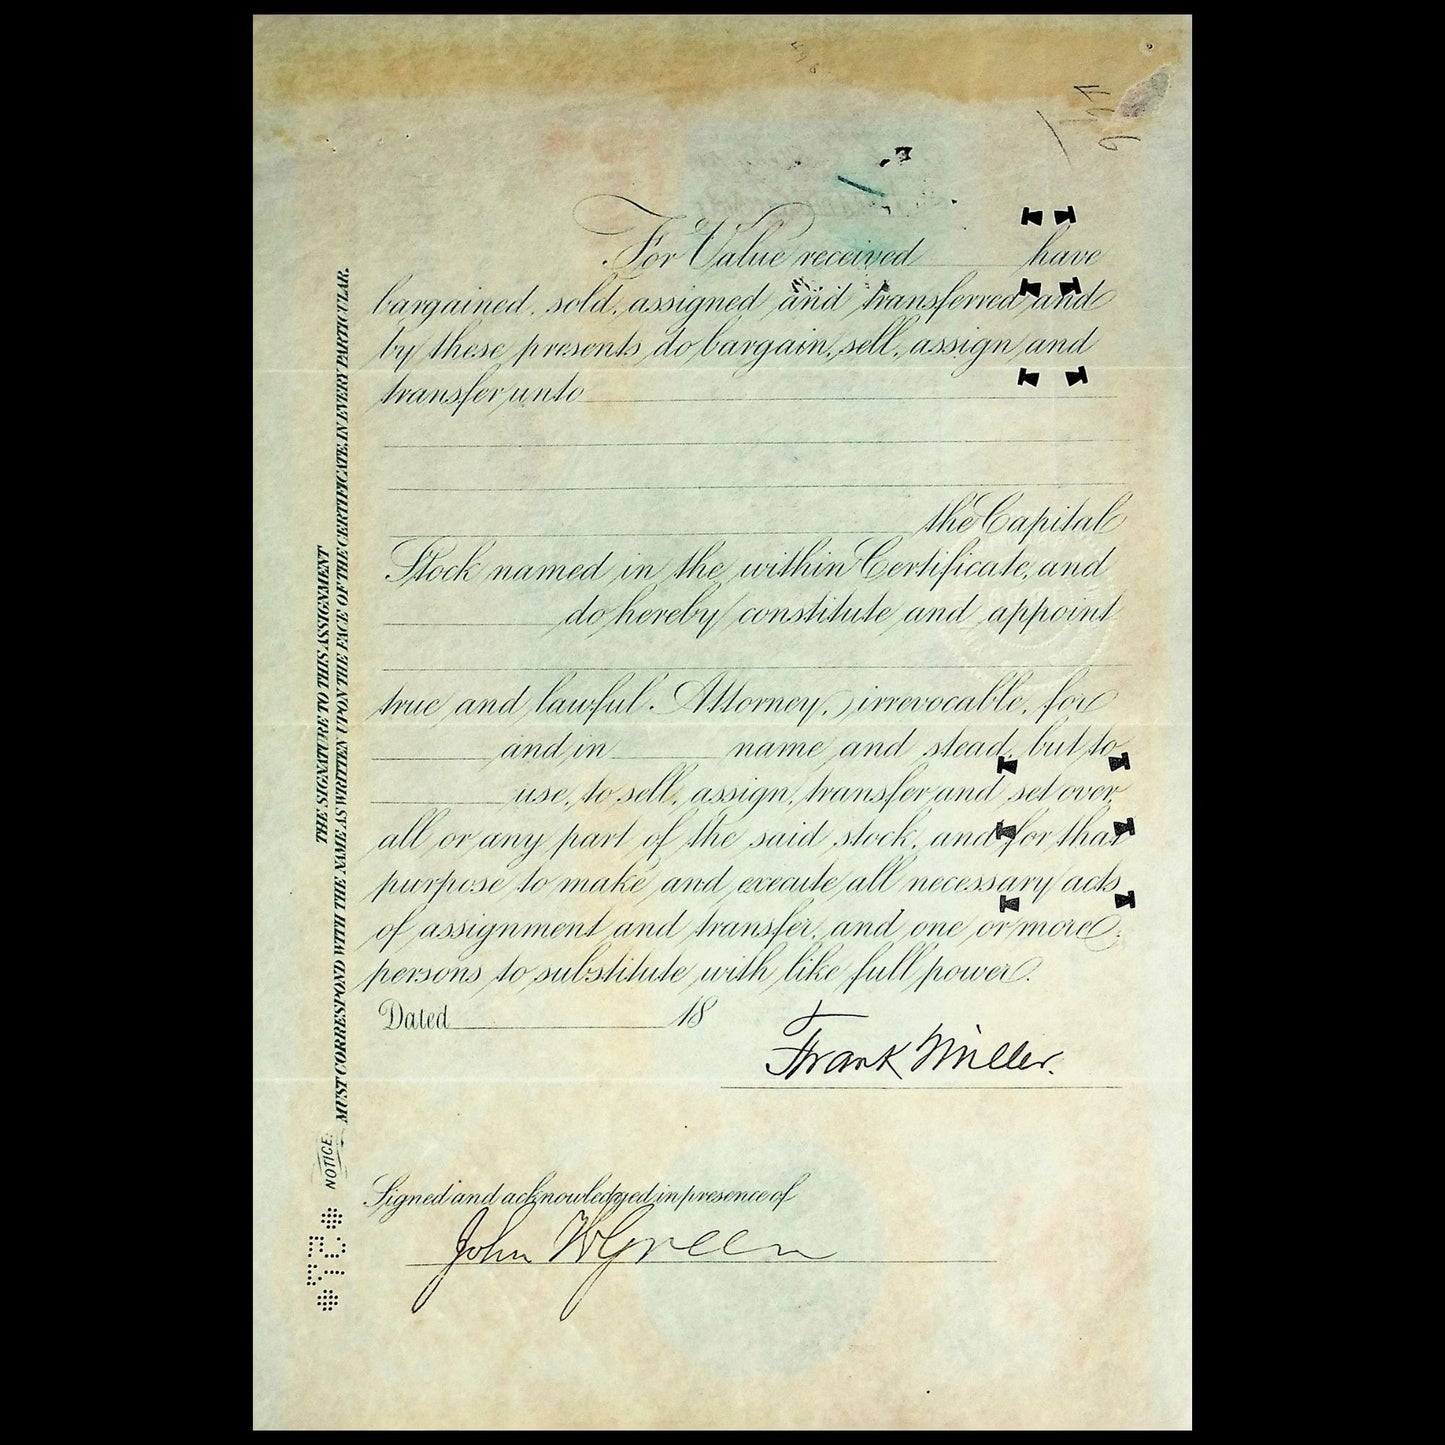 For Value received have
bargained, sold, assigned and transferred and
by these presents do bargain, sell, assign and
transfer unto
the Capital
Stock named in the within Certificate, and
do hereby constitute and appoint
true and lawful Attorney, irrevocable, for
and in name and stead, but to
use, to sell, assign, transfer and set over,
all or any part of the said stock, and for that
purpose to make and execute all necessary acts
of assignment and transfer, and one or more
persons to substitute with like full power.
Dated 18
Frank Miller.
Signed and acknowledged in presence of
John W Green
NOTICE:
THE SIGNATURE TO THIS ASSIGNMENT
MUST CORRESPOND WITH THE NAME AS WRITTEN UPON THE FACE OF THE CERTIFICATE, IN EVERY PARTICULAR.